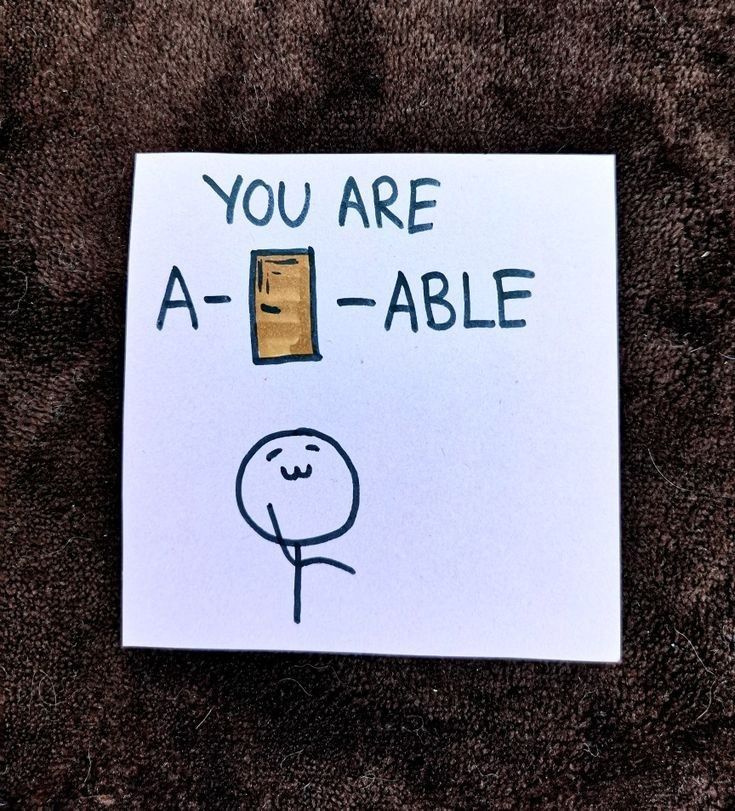 YOU ARE
A- -ABLE